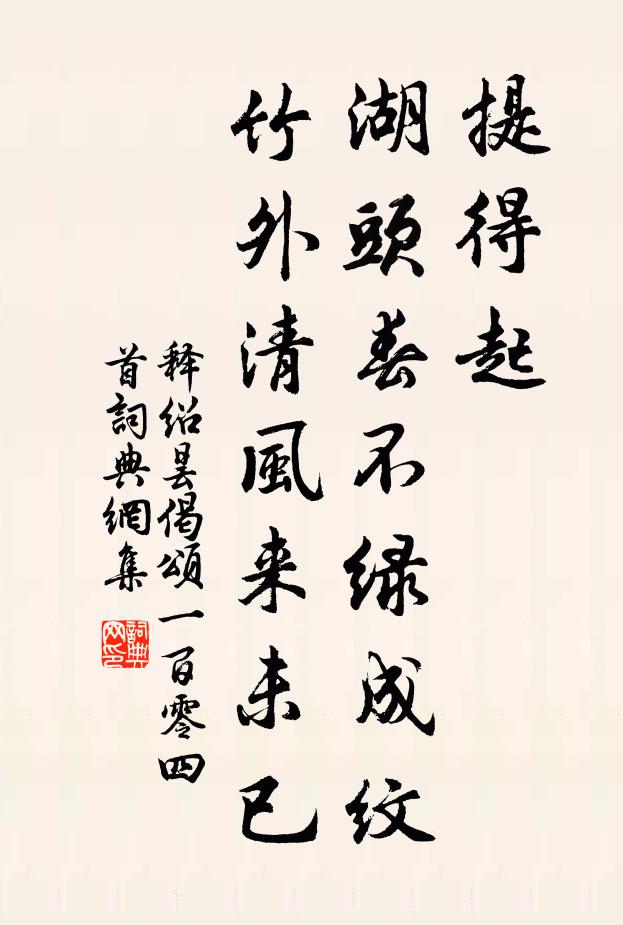 提得起
湖頭春不綠成紋
竹外清風来未已
释绍昙偈頌一百零四
首詞典網集
詞典网印